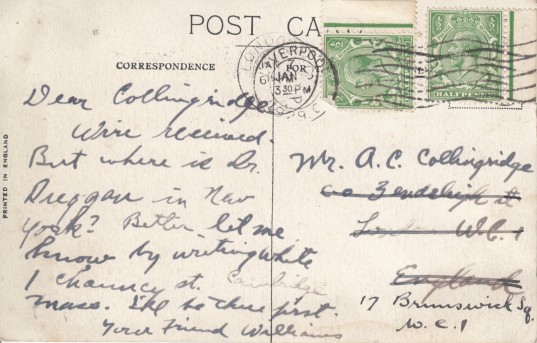 POST CA
CORRESPONDENCE
PRINTED IN ENGLAND
LONDON
LIVERPOOL
FOR
6 JAN
3 30 PM
HALFPENNY
Dear Collingridge
Wire received.
But where is Dr.
Duggan in New
York? Better let me
know by writing White
1 Chauncy st. Cambridge
Mass. I'll be there first.
Your Friend Williams
Mr. A.C. Collingridge
Endsleigh st
W.C. 1
England
17 Brunswick Sq.
W.C.1